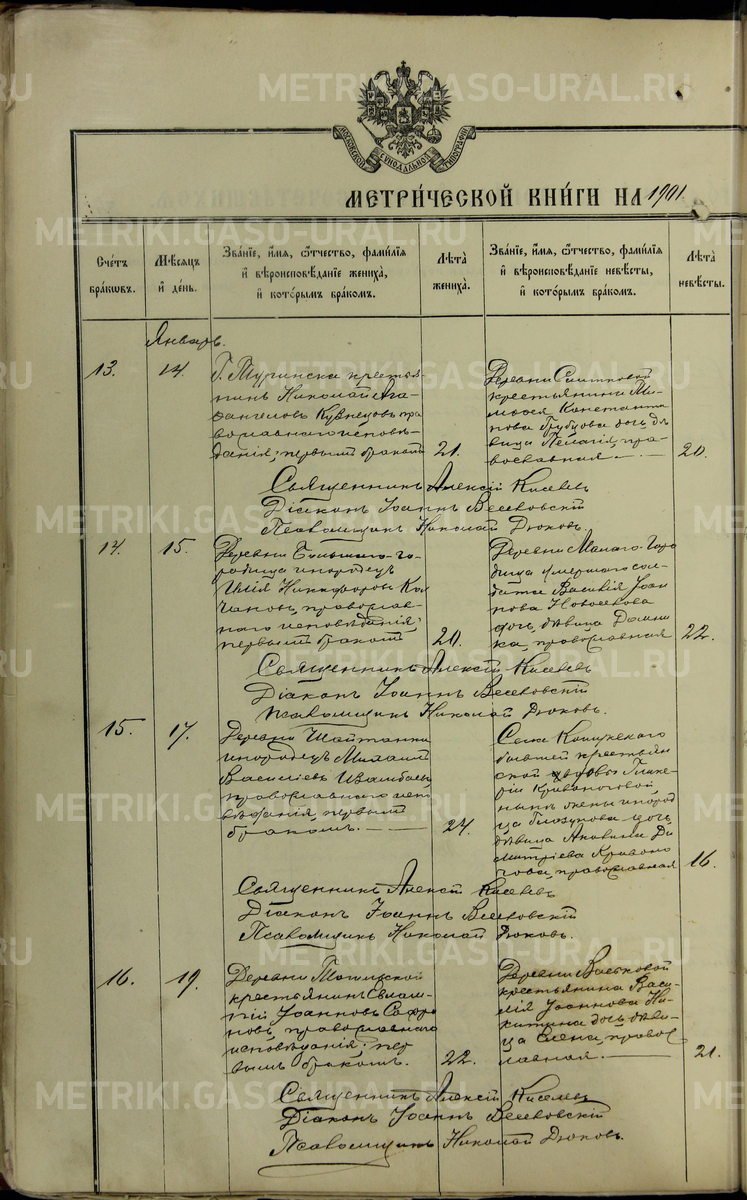 МОСКОВСКОЙ СѴНОДАЛЬНОЙ ТИПОГРАФІИ
МЕТРИ́ЧЕСКОЙ КНИ́ГИ НА 1901
Сче́тъ бра́кѡвъ.
Мѣ́сѧцъ и҆ де́нь.
Зва́нїе, и҆́мѧ, ѻ҆́тчество, фами́лїѧ и҆ вѣроисповѣ́данїе жениха̀, и҆ кото́рымъ бра́комъ.
Лѣ́та жениха̀.
Зва́нїе, и҆́мѧ, ѻ҆́тчество, фами́лїѧ и҆ вѣроисповѣ́данїе невѣ́сты, и҆ кото́рымъ бра́комъ.
Лѣ́та невѣ́сты.
Январь.
13.
14.
Г. Туринска крестья-
нинъ Николай Ага-
фангеловъ Кузнецовъ, пра
вославнаго исповѣ-
данія; первымъ бракомъ
21.
Деревни
крестьянина
Константи
нова дочь дѣ
вица Пелагія, пра-
вославная
20.
Священникъ Алексій Киселевъ
Діаконъ Іоаннъ
Псаломщикъ Николай Дюковъ.
14.
15.
Деревни Большого Го-
родища инородецъ
Илія Никифоровъ
православ-
наго исповѣданія;
первымъ бракомъ
20.
Деревни Малаго Горо
дища умершаго сол-
дата Василія Іоан
нова Новоселова
дочь, дѣвица
православная
22.
Священникъ Алексій Киселевъ
Діаконъ Іоаннъ
Псаломщикъ Николай Дюковъ.
15.
17.
Деревни Шайтанки
инородецъ Михаилъ
Василіевъ
православнаго испо
вѣданія, первымъ
бракомъ.
24.
Села
бывшей крестьян
ской Глике-
ріи Кривоноговой
нынѣ жены инород
ца дочь,
дѣвица Ди
митріева Кривоно
гова, православная
16.
Священникъ Алексій Киселевъ
Діаконъ Іоаннъ
Псаломщикъ Николай Дюковъ.
16.
19.
Деревни
крестьянинъ Евлам-
пій Іоанновъ Сафро
новъ, православнаго
исповѣданія; пер
вымъ бракомъ.
22.
Деревни Васьковой
крестьянина Васи
лія Іоаннова Ни-
китина дочь дѣви-
ца Елена, правос
лавная.
21.
Священникъ Алексій Киселевъ
Діаконъ Іоаннъ
Псаломщикъ Николай Дюковъ.
METRIKI.GASO-URAL.RU